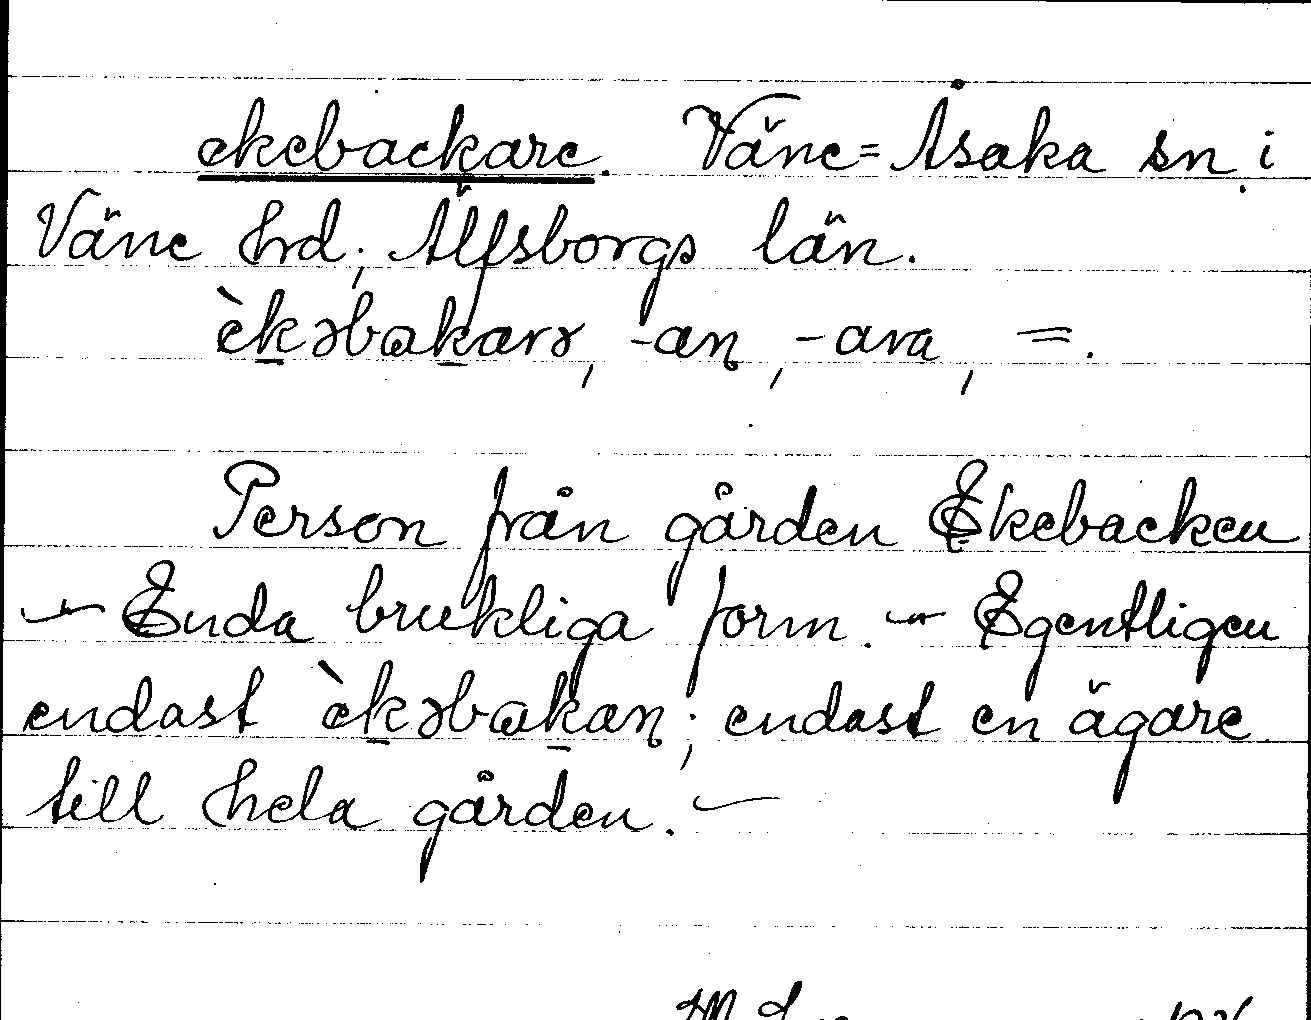 ekebackare. Väne=Åsaka sn i
Väne hrd, Älfsborgs län.
èkəbakarə, -an, -ara, =.
Person från gården Ekebacken
– Enda brukliga form. – Egentligen
endast èkəbakan; endast en ägare
till hela gården. –